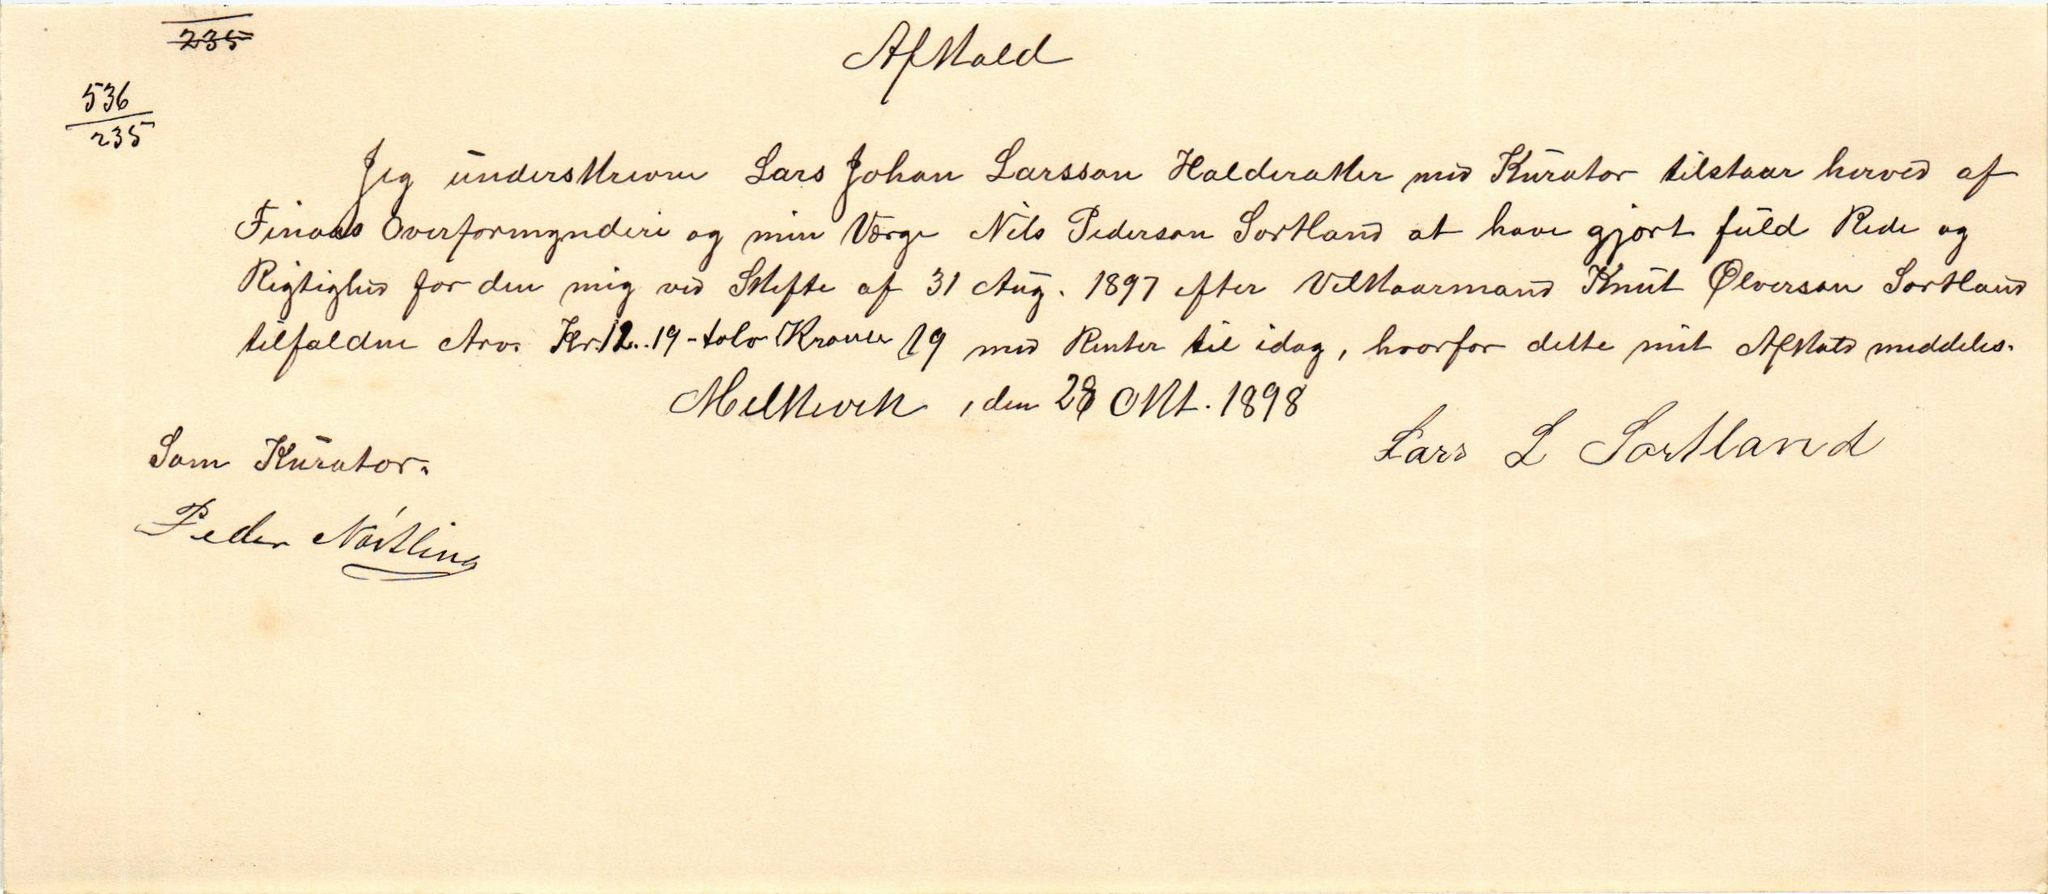 235
536
235
Afkald
Jeg underskrevne Lars Johan Larsson Halderaker med Kurator tilstaar herved af
Finaas Overformynderi og min Værge Nils Pederson Sortland at have gjort fuld Rede og
Rigtighed for den mig ved Skifte af 31 Aug. 1897 efter Vilkaarmand Knut Ølverson Sortland
tilfaldne Arv. Kr. 12..19 - tolv Kroner 19 med Renter til idag, hvorfor dette mit Afkald meddeles.
Melkevik, den 28 Okt. 1898
Lars L Sortland
Som Kurator.
Peder